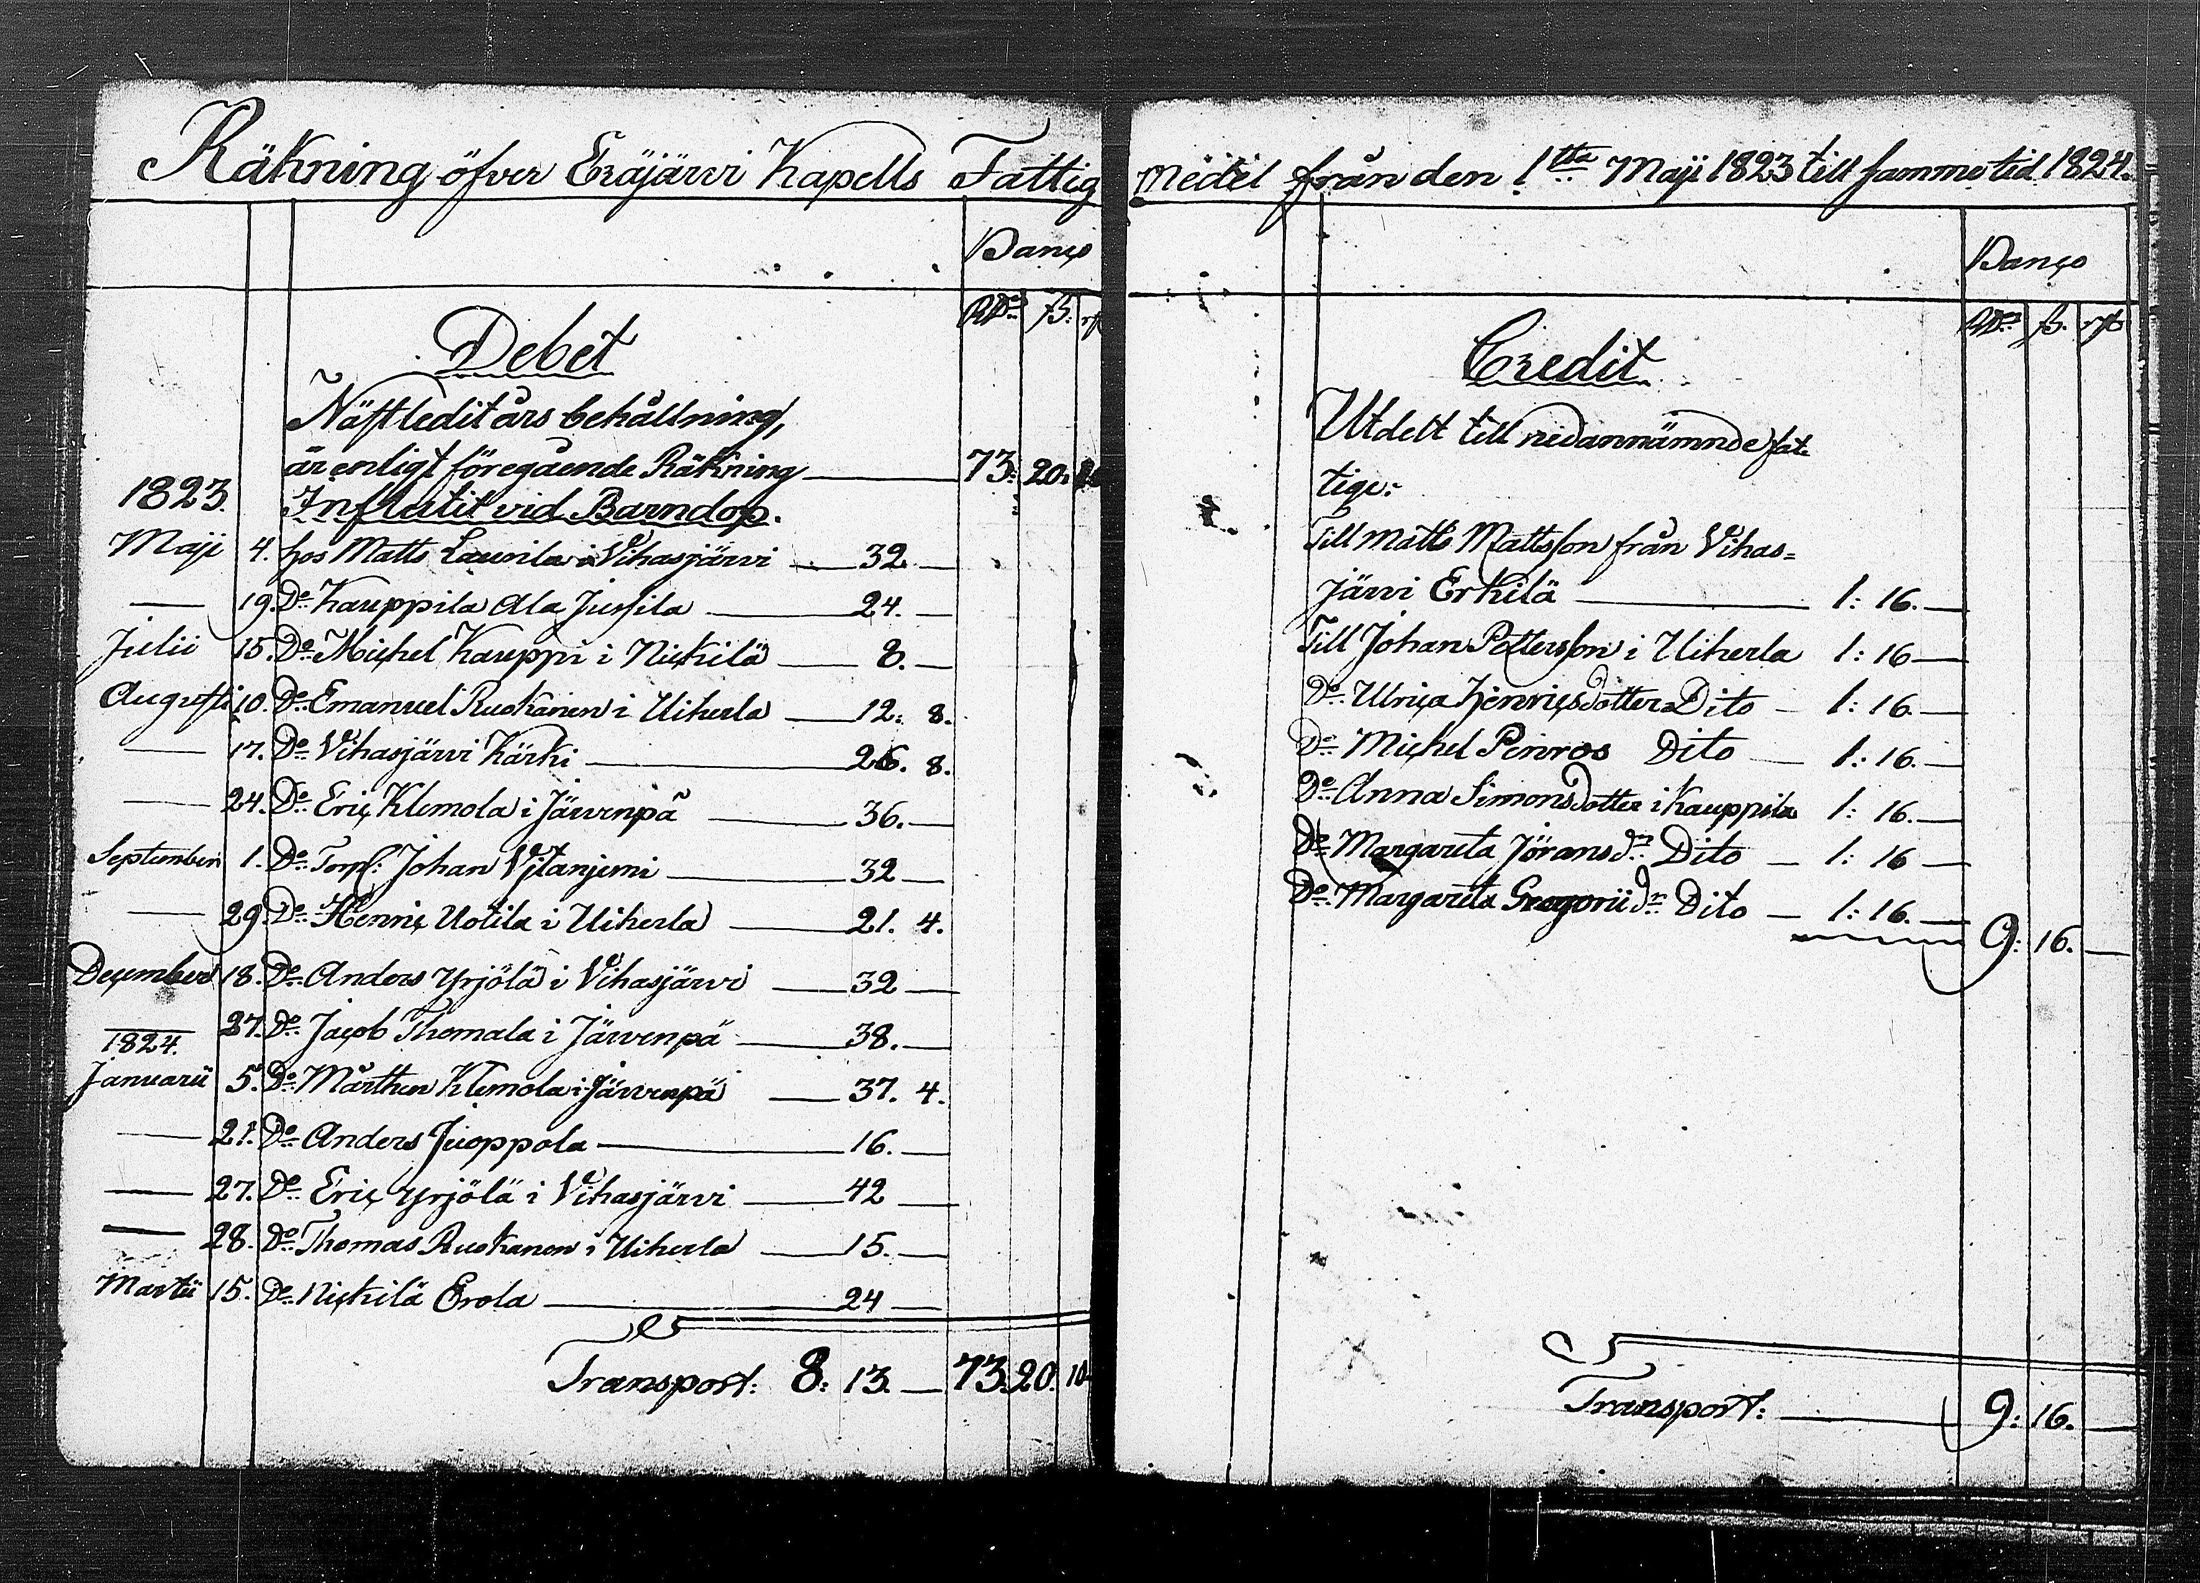 Räkning öfver Eräjärvi Kapells Fattig
Banco
RD:r ß: rst
Debet
Näftledit års behållning,
är enligt föregående Räkning 73: 20:
1823. Influtit vid Barndop.
Maji 4. hos Matts Laurila i Vihasjärvi 32.
— 19. Do Kauppila Ala Jussila 24.
Julii 15. Do Michel Kauppi i Nickilä 8.
Augusti 10. Do Emanuel Ruokanen i Uiherla 12: 8.
— 17. Do Vihasjärvi Kärki 26. 8.
— 24. Do Eric Klemola i Järvenpä 36.
September 1. Do Torp: Johan Vitaniemi 32
— 29. Do Henric Uotila i Uiherla 21. 4.
December 18. Do Anders Yrjölä i Vihasjärvi 32
27. Do Jacob Thomala i Järvenpä 38.
1824.
Januarii 5. Do Mårthen Klemola i Järvenpä 37. 4.
— 21. Do Anders Juoppola 16.
— 27. Do Eric Yrjölä i Vihasjärvi 42
— 28. Do Thomas Ruokanen i Uiherla 15.
Martii 15. Do Nickilä Erola 24
Transport: 8: 13. — 73. 20. 10
Medel från den 1sta Maji 1823 till samma tid 1824.
Banco
RD:r ß. rst
Credit
Utdelt till nedannämnde fat
tige:
Till Matts Mattsson från Vihas=
järvi Erkilä 1: 16.
Till Johan Pettersson i Uiherla 1: 16
Do Ulrica Henricsdotter Dito 1: 16.
Do Michel Penros Dito 1: 16.
Do Anna Simonsdotter i Kauppila 1: 16.
Do Margareta Jöransdr Dito 1: 16
Do Margareta Gregoriidr Dito 1: 16. 9: 16.
Transport: 9: 16.